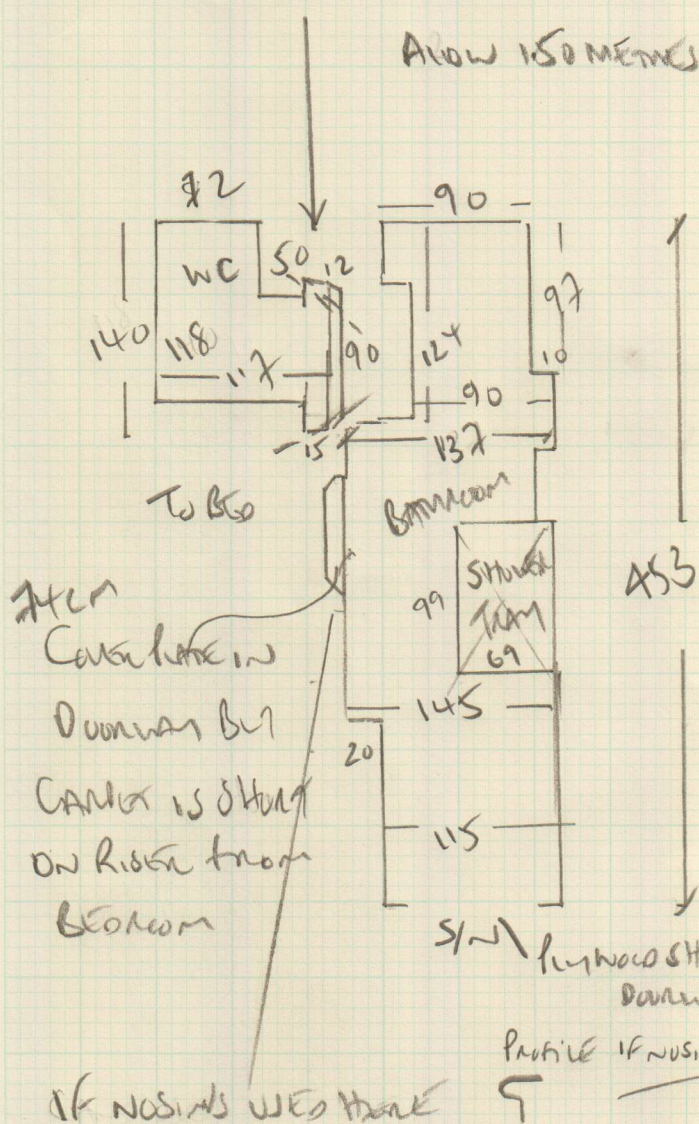 ALLOW 1.50 METRES
72
90
WC
50
12
97
140
118
117
90
124
10
90
15
137
TO BED
BATHROOM
SHOWER
TRAY
99
69
453
74CM
COVER PLATE IN
DOORWAY BUT
CARPET IS SHORT
ON RISER FROM
BEDROOM
145
20
115
S/N
PLYWOOD SH
PROFILE IF NOSI
IF NOSING USED HERE